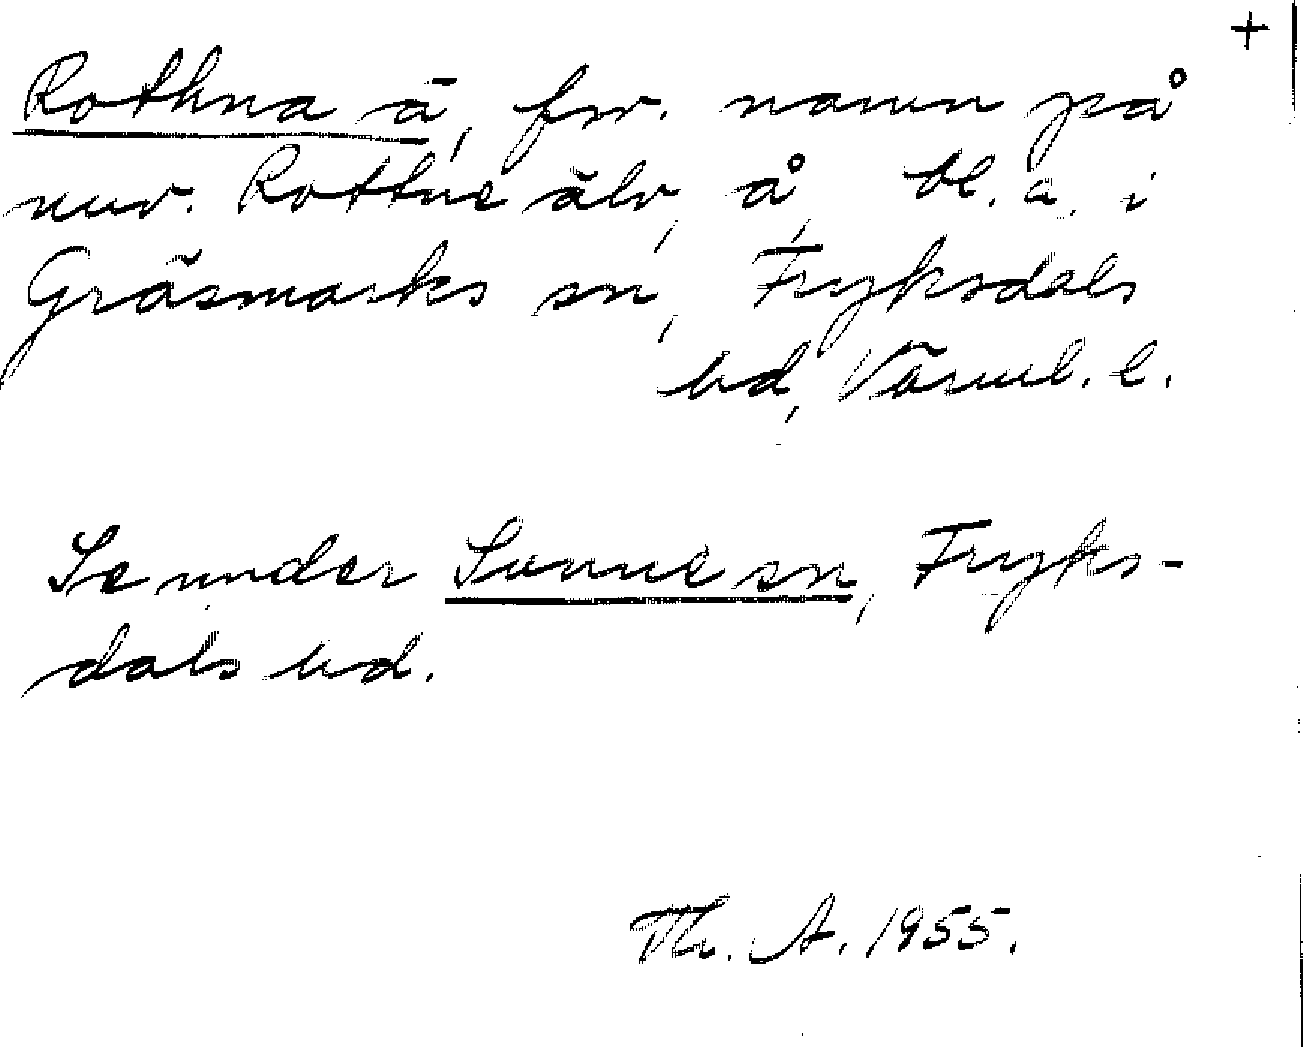 +
Rothna ā, fsv. namn på
nuv. Rottne älv, å, bl. a. i
Gräsmarks sn, Fryksdals
hd, Värml. l.
Se under Sunne sn, Fryks-
dals hd.
Th. A. 1955.